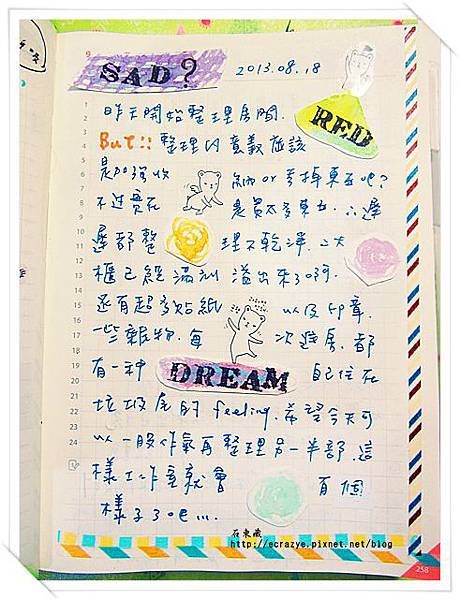 SAD? 2013.08.18
昨天開始整理房間.
RED
But!! 整理的意義應該
是加強收 納or丟掉東西吧?
不過實在 是買太多東西.
都整 理不乾淨.
櫃已經滿到溢出來了啊.
還有超多貼紙 以及印章.
一些雜物.每 次進房.都
有一種 DREAM 自己住在
垃圾屋的feeling.希望今天可
以一股作氣再整理另一半部.這
樣工作室就會 有個
樣子了吧...
http://ecrazye.pixnet.net/blog
258